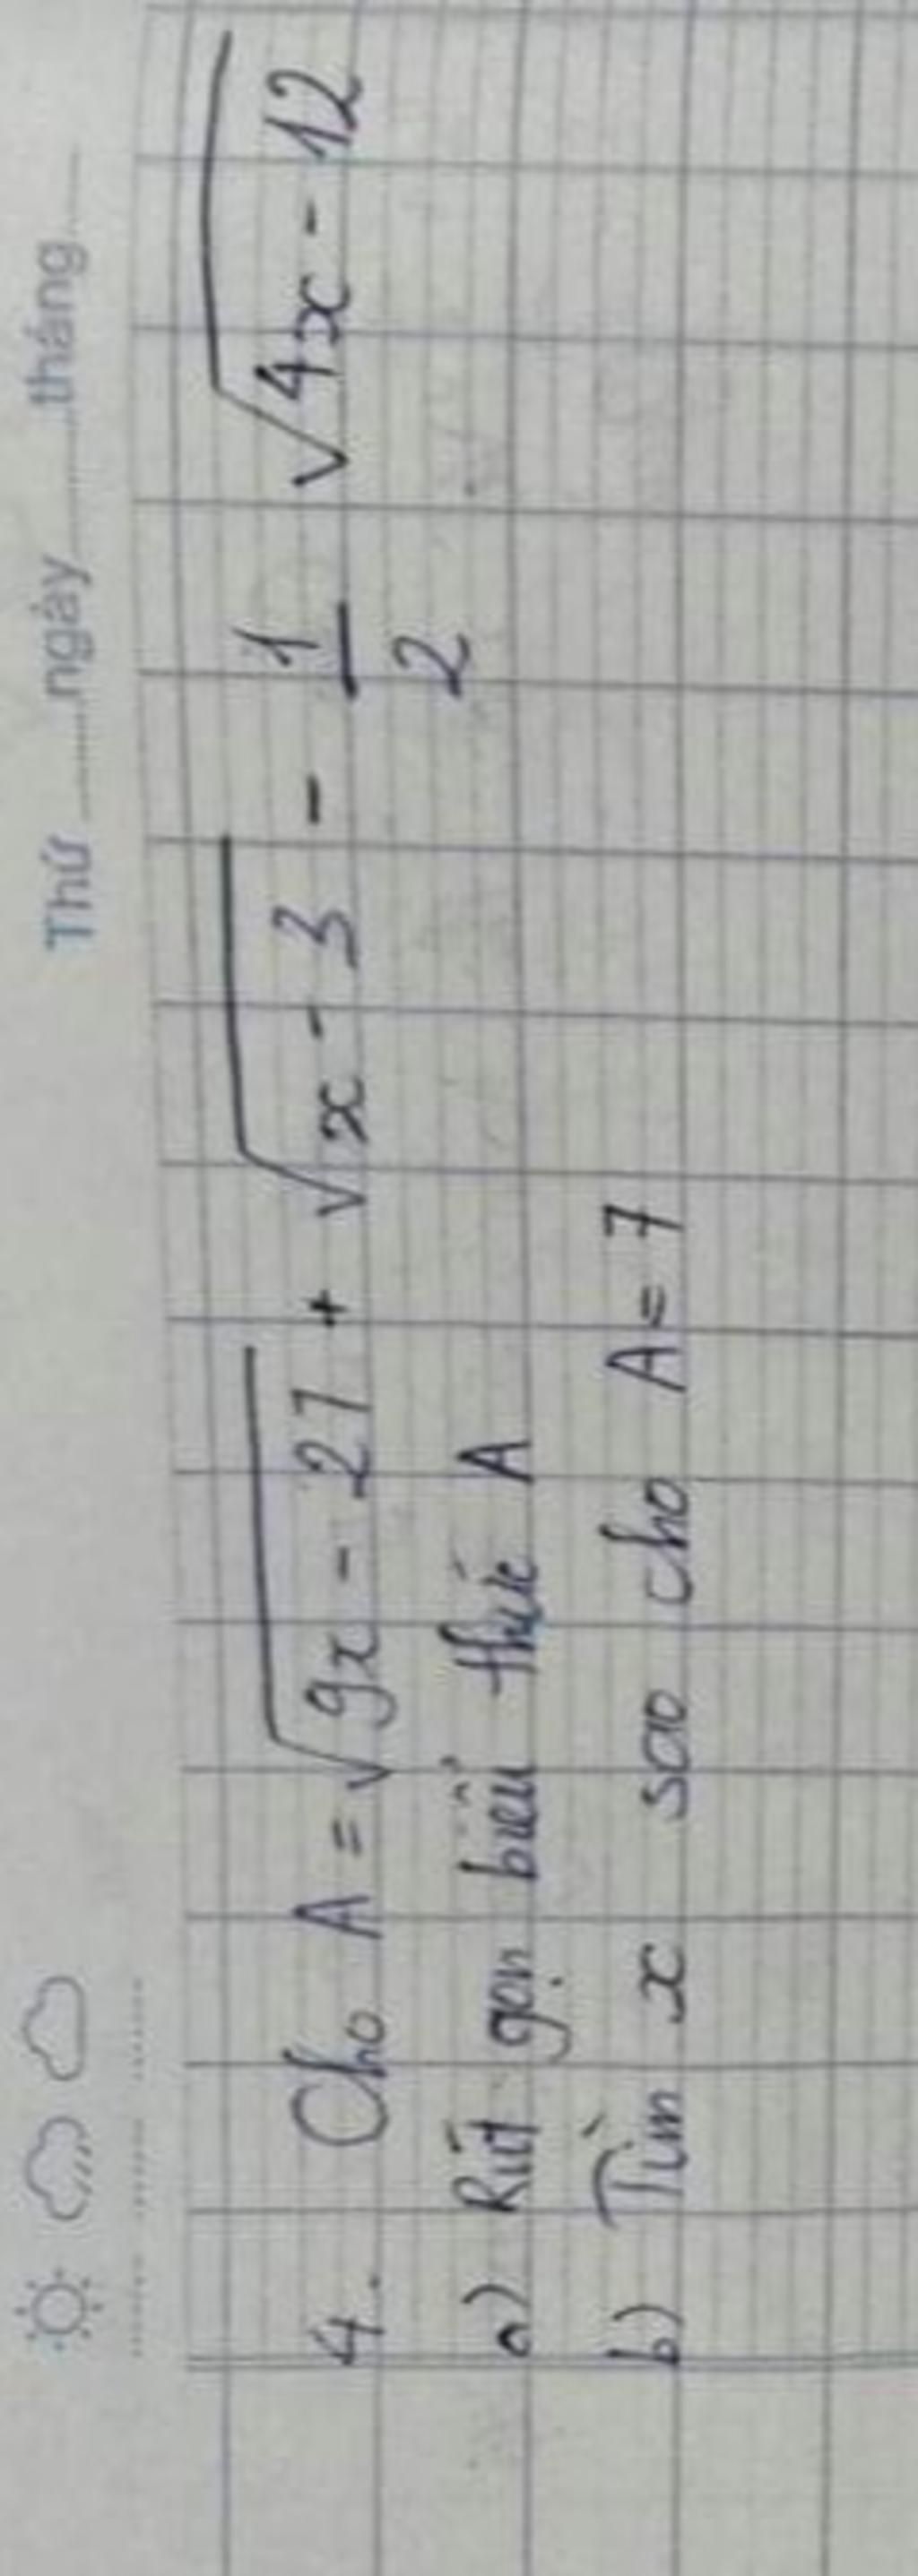 Thứ ........ngày........tháng....
4. Cho A = √(9x - 27) + √(x - 3) - 1/2 √(4x - 12)
a) Rút gọn biểu thức A
b) Tìm x sao cho A = 7